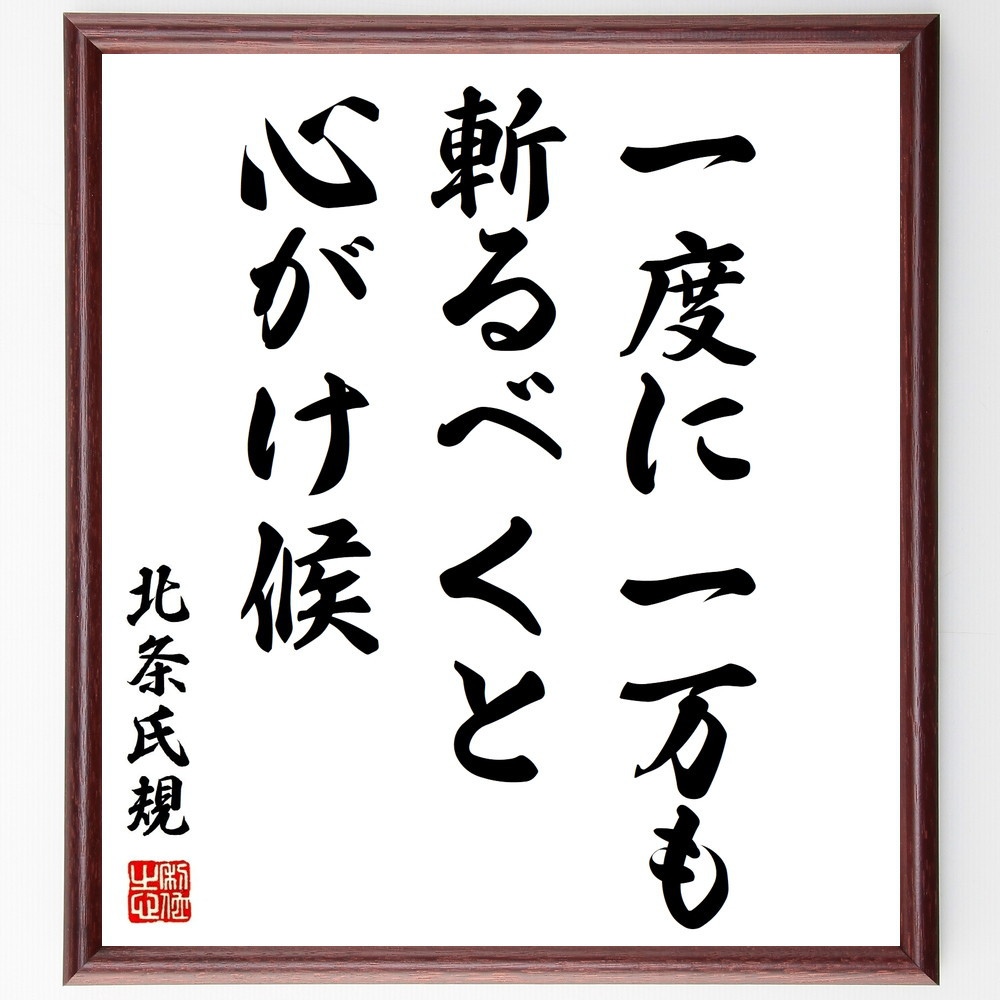 一度に一万も
斬るべくと
心がけ候
北条氏規